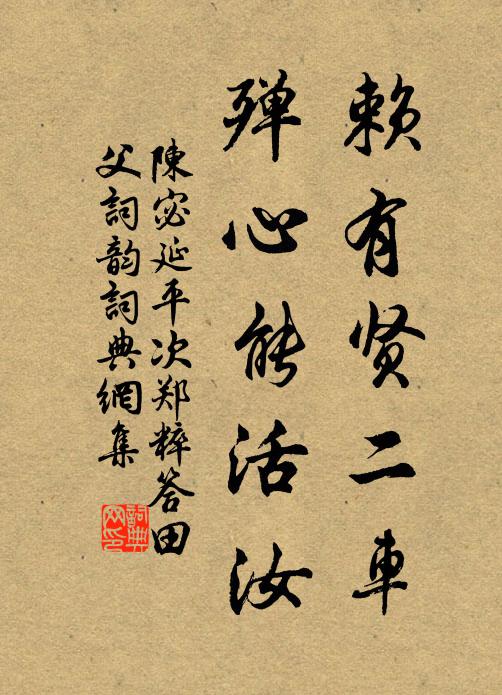 赖有贤二车
殚心能活汝
陳宓延平次郑粹答田
父詞韵詞典網集
詞典网印